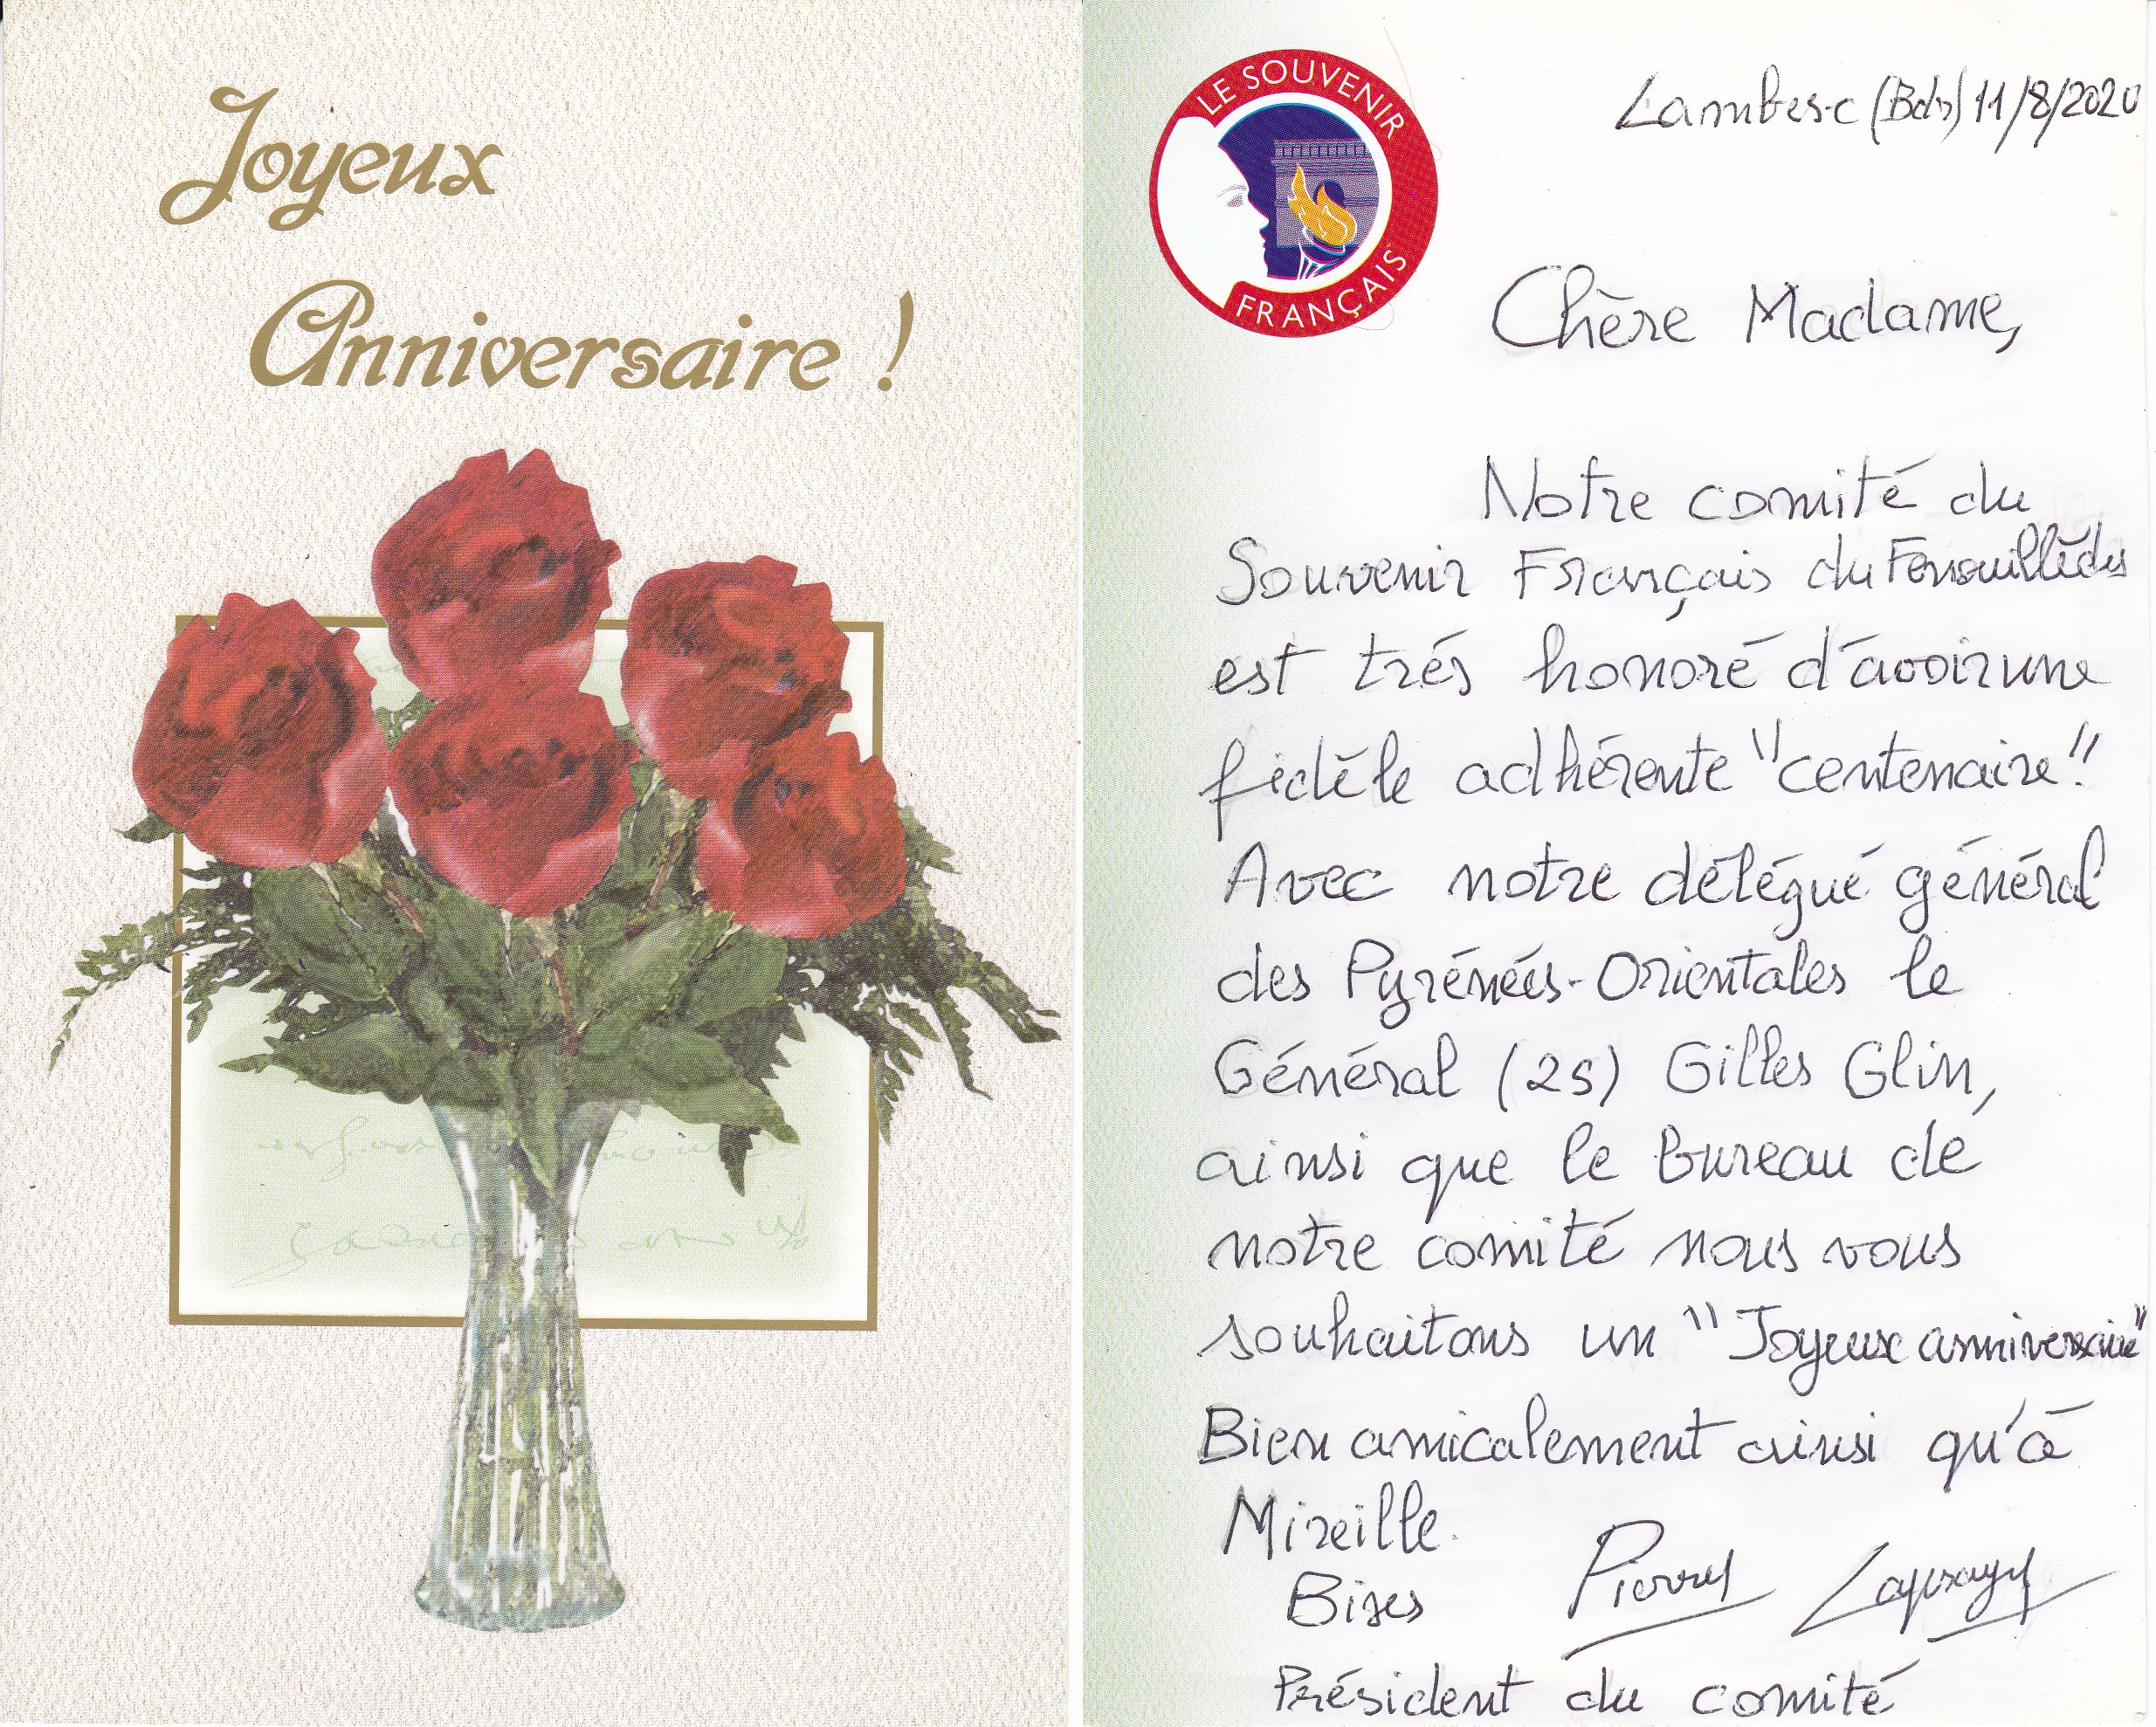 Joyeux
Anniversaire !
LE SOUVENIR
FRANÇAIS
Lambesc (Bdr) 11/8/2020
Chère Madame,
Notre comité du
Souvenir Français du Fenouillèdes
est trés honoré d'avoir une
fidèle adhérente "centenaire"!
Avec notre délégué général
des Pyrénées-Orientales le
Général (2S) Gilles Glin,
ainsi que le bureau de
notre comité nous vous
souhaitons un "Joyeux anniversaire"
Bien amicalement ainsi qu'à
Mireille.
Bises Pierre
Président du comité